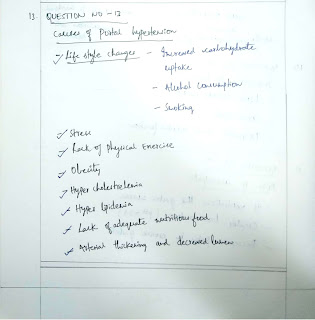 13. QUESTION NO - 13
Causes of Portal hypertension
✓ Life style changes - Increased carbohydrate
uptake
- Alcohol Consumption
- Smoking
✓ Stress
✓ Lack of Physical Exercise
✓ Obesity
✓ Hyper cholestrolemia
✓ Hyper lipidemia
✓ Lack of adequate nutritious food
✓ Arterial thickening and decreased lumen